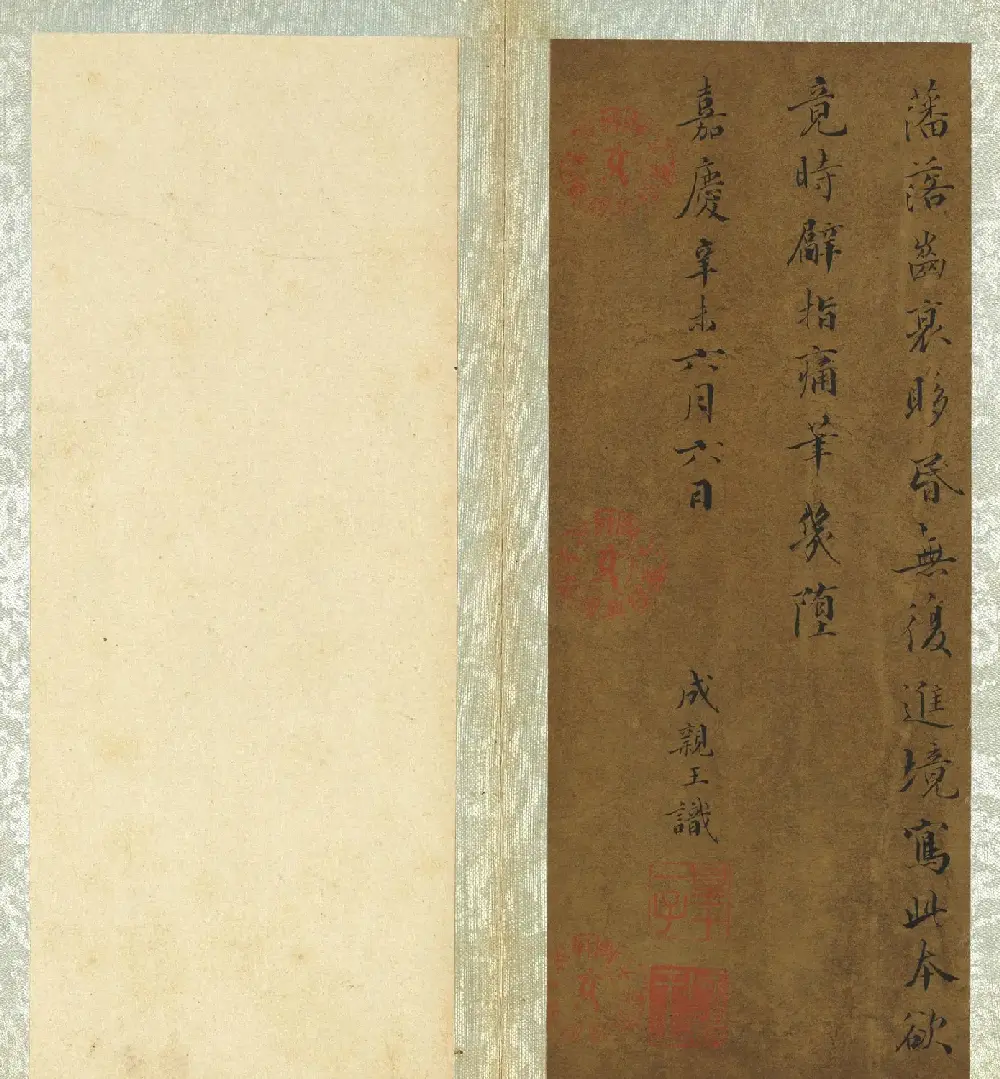 藩落齒衰眵昏無復進境寫此本欲
竟時臂指痛筆幾堕
嘉慶辛未六月六日
成親王識